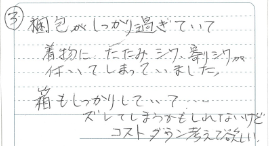 ③ 梱包がしっかり過ぎていて
着物に たたみシワ、寄りシワが
付いてしまっていました。
箱もしっかりしていて....
ズレてしまうかもしれないけど
コストダウン考えて欲しい。